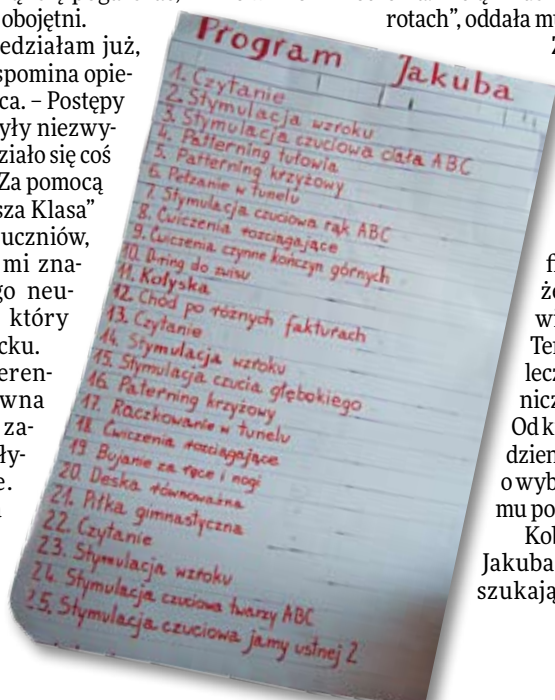 obojętni.
edziałam już,
spomina opie-
ca. – Postępy
yły niezwy-
ziało się coś
Za pomocą
sza Klasa”
uczniów,
mi zna-
go neu-
który
cku.
eren-
wna
za-
ły-
e.
Program Jakuba
1. Czytanie
2. Stymulacja wzroku
3. Stymulacja czuciowa ciała ABC
4. Patterning tułowia
5. Patterning krzyżowy
6. Pełzanie w tunelu
7. Stymulacja czuciowa rąk ABC
8. Ćwiczenia rozciągające
9. Ćwiczenia czynne kończyn górnych
10. D-ring do zwisu
11. Kołyska
12. Chód po różnych fakturach
13. Czytanie
14. Stymulacja wzroku
15. Stymulacja czucia głębokiego
16. Paterning krzyżowy
17. Raczkowanie w tunelu
18. Ćwiczenia rozciągające
19. Bujanie za ręce i nogi
20. Deska równoważna
21. Piłka gimnastyczna
22. Czytanie
23. Stymulacja wzroku
24. Stymulacja czuciowa twarzy ABC
25. Stymulacja czuciowa jamy ustnej 2
rotach”, oddała mi
Z
fi
że
wi
Ter
lecz
nicz
Od k
dzien
o wyb
mu po
Kob
Jakuba
szukają